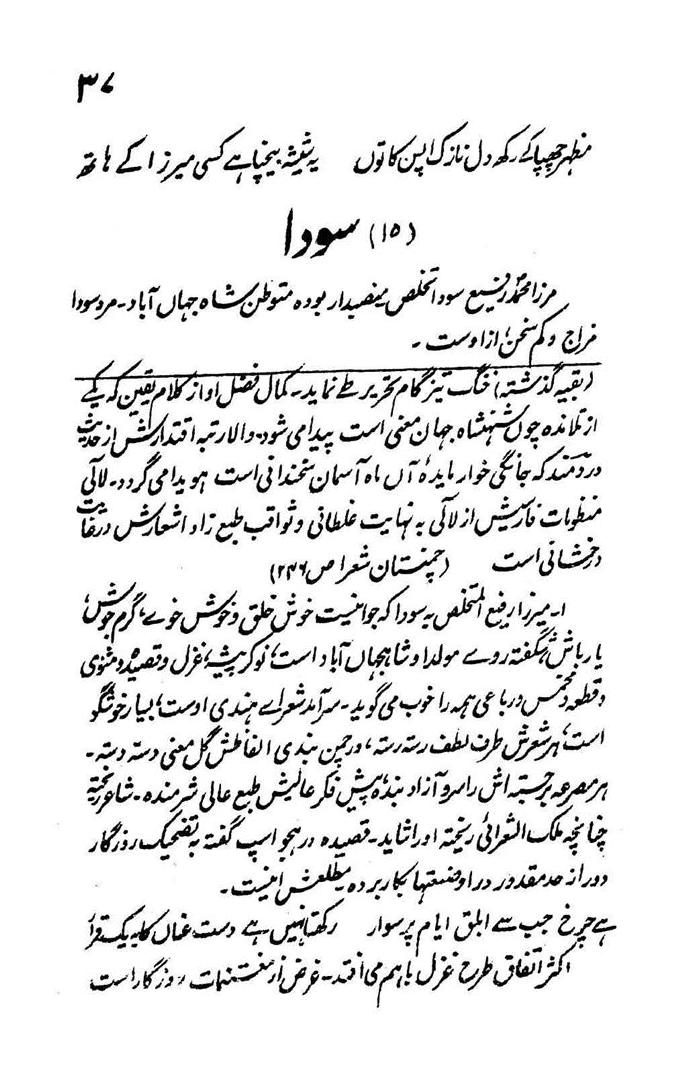 ۳۷
مظہر چھپا کے رکھ دل نازک اپس کا توں یہ شیشہ بیچنا ہے کسی میرزا کے ہاتھ
(۱۵) سودا
مرزا محمد رفیع سودا تخلص منصبدار بودہ متوطن شاہ جہاں آباد۔ مرد سودا
مزاج و کم سخن، از اوست۔
(بقیہ گذشتہ) خنگ تیز گام تحریر طے نماید۔ کمال فضل او از کلام یقین کہ یکے
از تلامذہ چوں شہنشاہ جہان معنی است پیدا می شود۔ والا رتبہ اقتدارش از حدیث
دردمند کہ جانگی خوار مایدہ آں ماہ آسمان سخندانی است ہویدا می گردد۔ لآلی
منظومات فارسیش از لآلی بہ نہایت غلطانی و ثواقب طبع زاد اشعارش در غایت
درخشانی است (چمنستان شعرا ص ۲۴۶)
۱۔ میرزا رفیع المتخلص بہ سودا کہ جوانیست خوش خلق و خوش خوے، گرم جوش،
یار باش، شگفتہ روے مولد او شاہجہاں آباد است، نوکر پیشہ، غزل و قصیدہ و مثنوی
و قطعہ و مخمس و رباعی ہمہ را خوب می گوید۔ سرآمد شعراے ہندی اوست، بسیار خوشگو
است، ہر شعرش طرف لطف رستہ رستہ، در چمن بندی الفاظش گل معنی دستہ دستہ۔
ہر مصرعہ برجستہ اش را سرو آزاد بندہ، پیش فکر عالیش طبع عالی شرمندہ۔ شاعر ریختہ
چنانچہ ملک الشعرائی ریختہ او را شاید۔ قصیدہ در ہجو اسپ گفتہ بہ تضحیک روزگار
دور از حد مقدور در او صنعتہا بکار بردہ مطلعش اینست۔
ہے چرخ جب سے ابلق ایام پر سوار رکھتا نہیں ہے دست عناں کا بہ یک قرار
اکثر اتفاق طرح غزل باہم می افتد۔ غرض از مغتنمات روزگار است